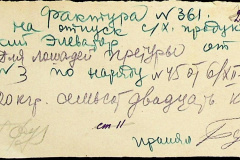 Фактура № 361.
на отпуск с/х. продук
кий Элеватор от
для лошадей
№ 3 по наряду № 45 от 6/XII
20 кгр. семьсот двадцать к
ст-11
принял